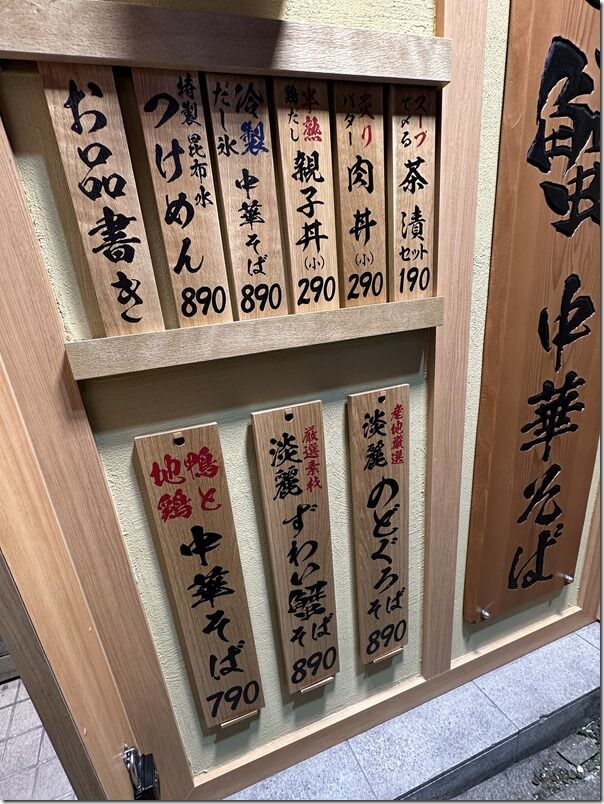 中華そば
お品書き
特製
昆布水
つけめん
890
冷製
だし氷
中華そば
890
半熟
鶏だし
親子丼
(小)
290
炙り
バター
肉丼
(小)
290
スープ
で〆る
茶漬
セット
190
産地厳選
淡麗
のどぐろそば
890
厳選素材
淡麗
ずわい蟹そば
890
鴨と
地鶏
中華そば
790